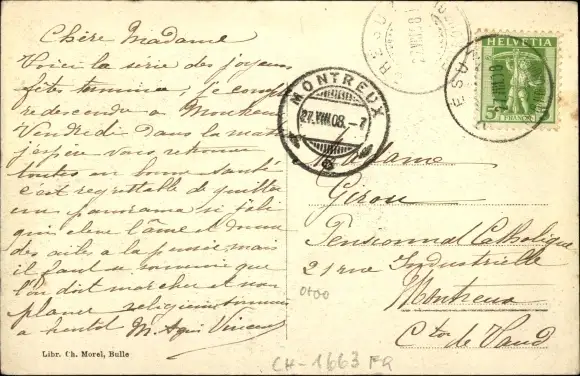 Chère Madame
Voici la série des joyeuses
fêtes terminée; je compte
redescendre à Montreux
Vendredi dans la matinée
j'espère vous retrouver
toutes en bonne santé
c'est regrettable de quitter
un panorama si joli
qui élève l'âme et donne
des ailes à la pensée mais
il faut se souvenir que
l'on doit marcher et non
planer religieusement
a bientôt M.
Libr. Ch. Morel, Bulle
RÉSU
MONTREUX
27.VIII.08.-7
HELVETIA
5
FRANCO
Madame
Girou
Pensionnat Catholique
21 rue Industrielle
Montreux
Cton de Vaud
0400
CH-1663 FG